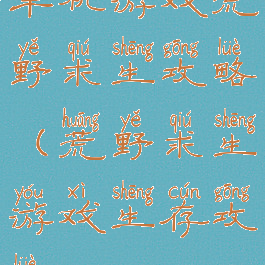 单机游戏荒
yě qiú shēng gōng lüè
野求生攻略
huāng yě qiú shēng
(荒野求生
yóu xì shēng cún gōng
游戏生存攻
lüè